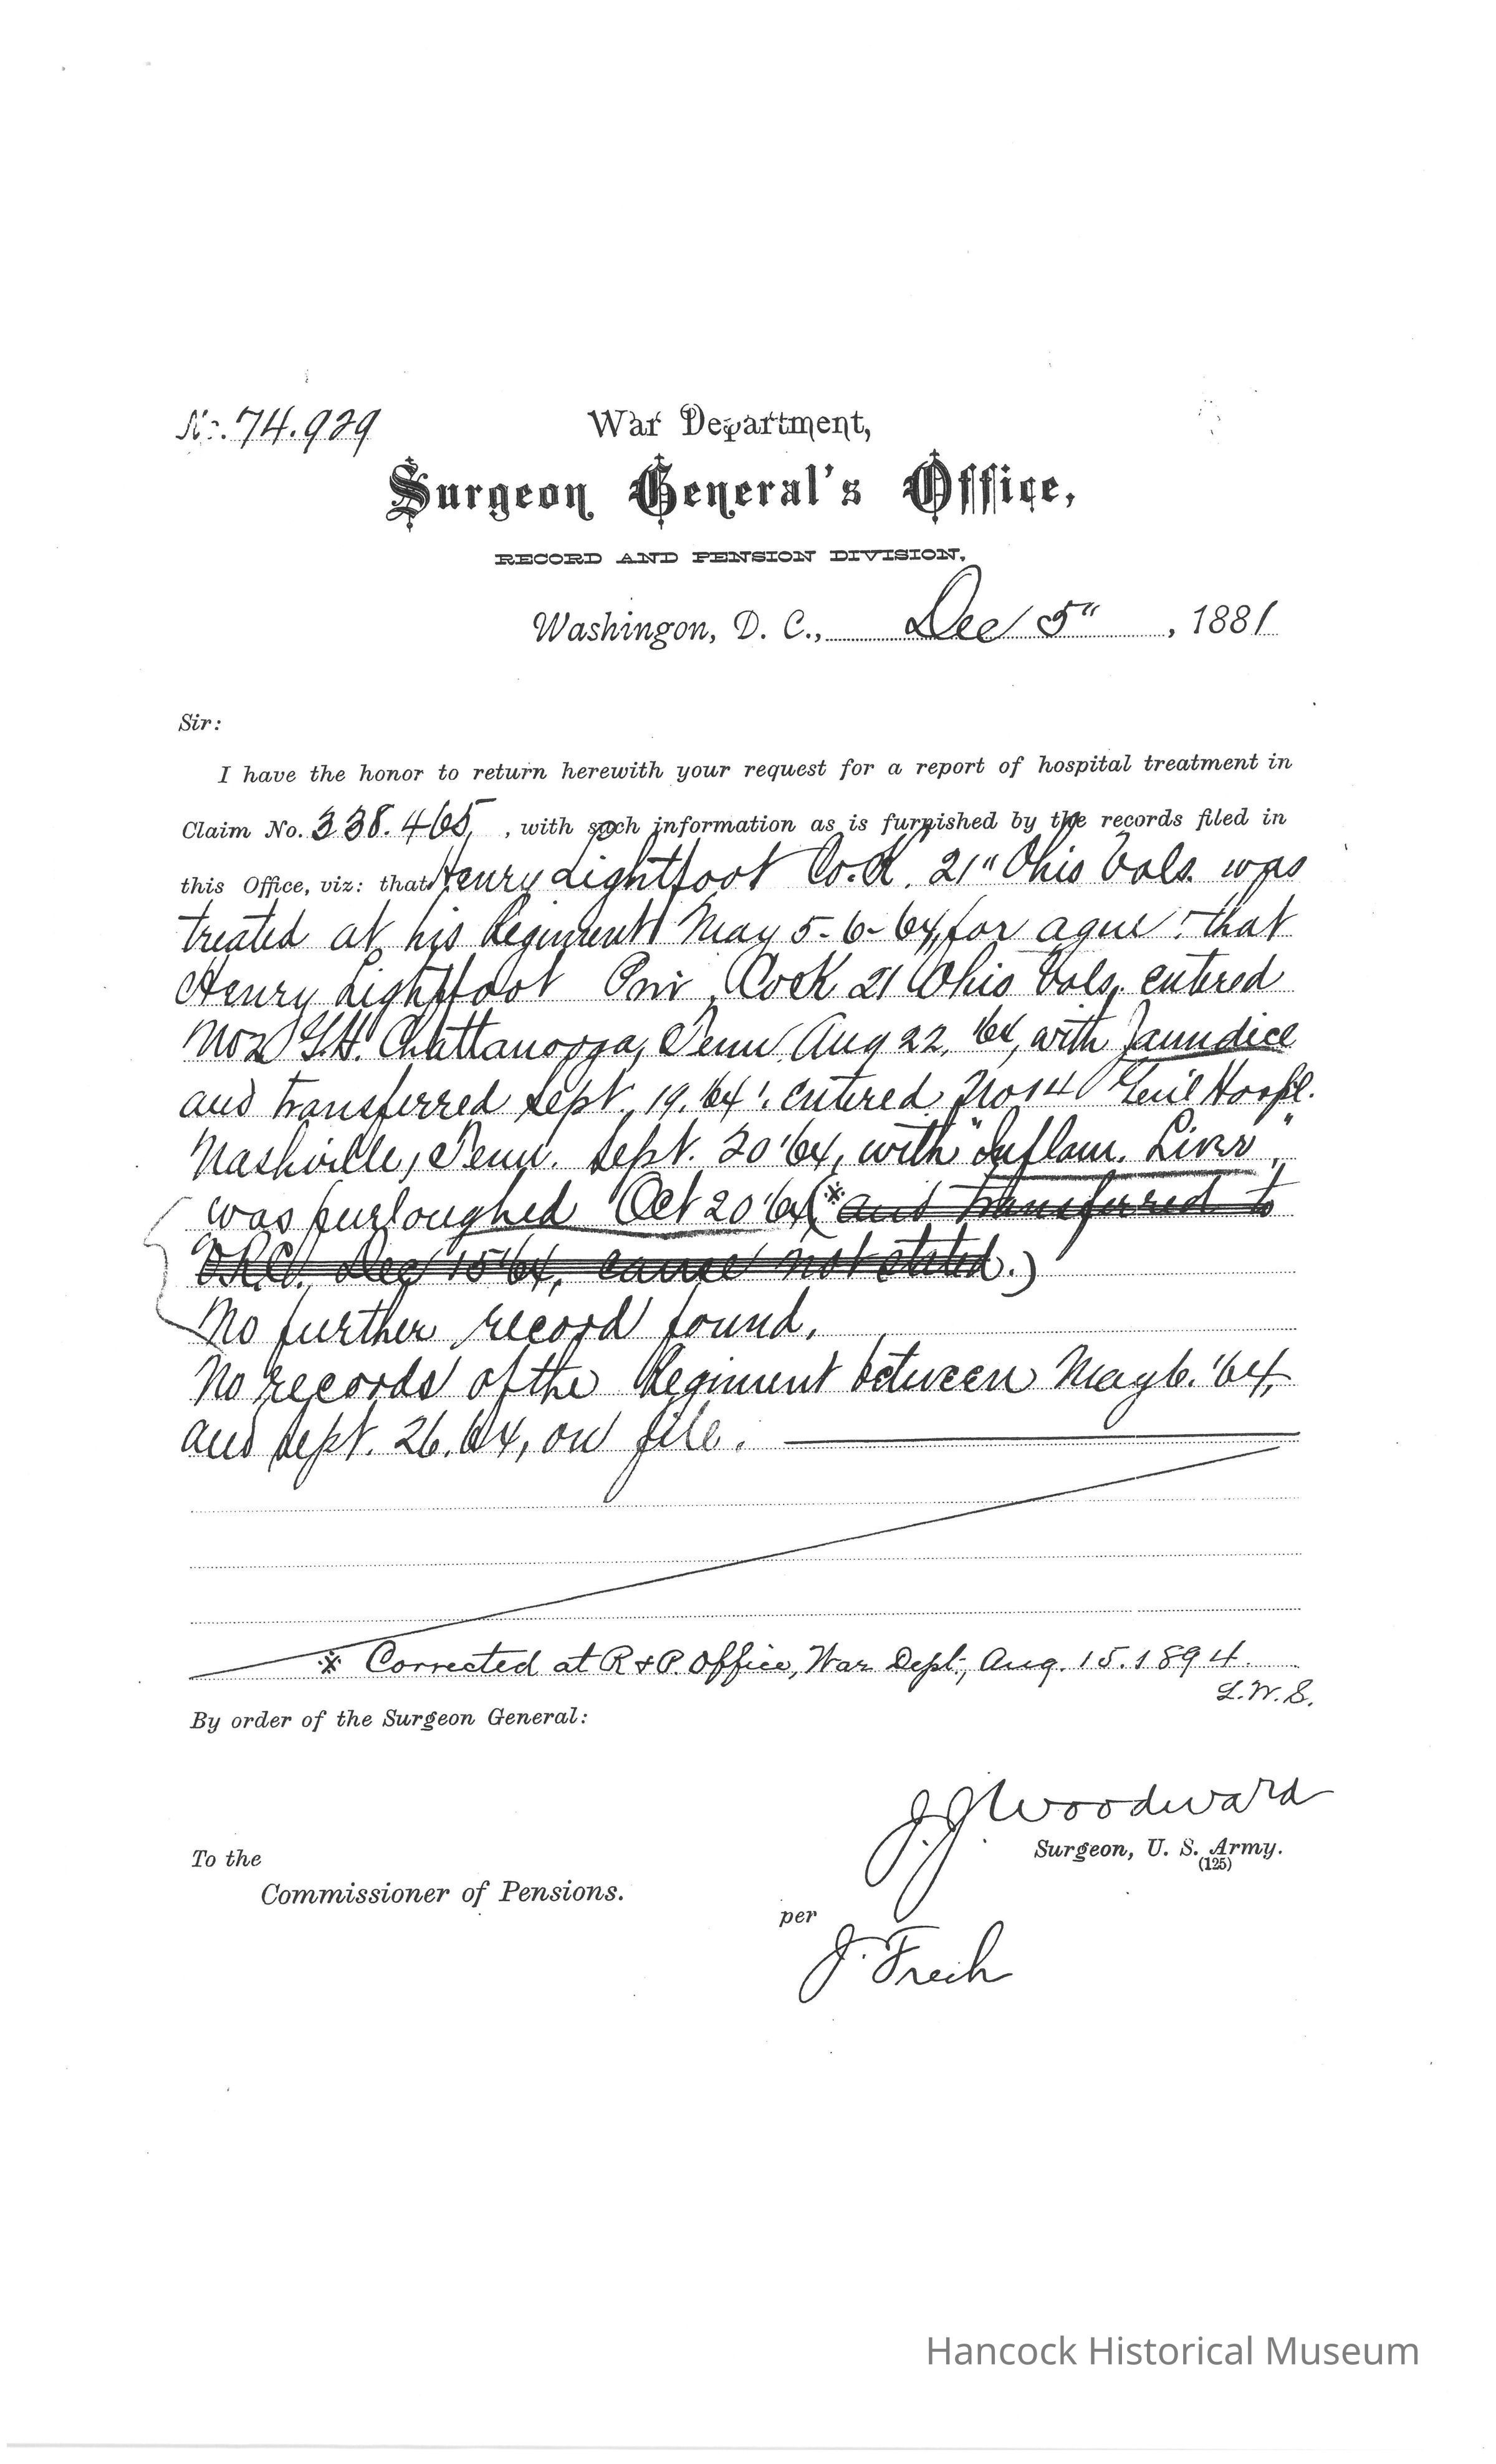 No. 74.929
War Department,
Surgeon General's Office,
RECORD AND PENSION DIVISION,
Washingon, D. C., Dec 5", 1881
Sir:
I have the honor to return herewith your request for a report of hospital treatment in
Claim No. 338.465, , with such information as is furnished by the records filed in
this Office, viz: that Henry Lightfoot Co. K. 21" Ohio Vols. was
treated at his Regiment May 5-6-64, for ague: that
Henry Lightfoot Priv. Co K 21 Ohio Vols, entered
No 2 G.H. Chattanooga, Tenn. Aug 22, '64, with Jaundice
and transferred Sept. 19. 64': entered No 14 Gen'l Hospl.
Nashville, Tenn. Sept. 20 '64, with "Inflam. Liver",
was furloughed Oct 20 '64 (* and transferred to
V.R.C. Dec 15 '64, cause not stated.)
No further record found.
No records of the Regiment between May 6. '64,
and Sept. 26. 64, on file.
* Corrected at R & P. Office, War Dept., Aug. 15. 1894.
L.W.S.
By order of the Surgeon General:
J. J. Woodward
Surgeon, U. S. Army.
(125)
To the
Commissioner of Pensions.
per
J. Frech
Hancock Historical Museum